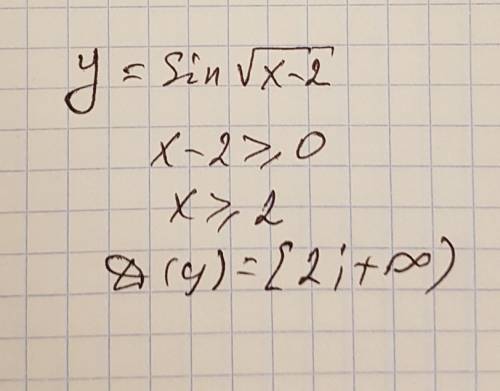 y = sin √(x-2)
x-2 ≥ 0
x ≥ 2
D(y) = [2; +∞)